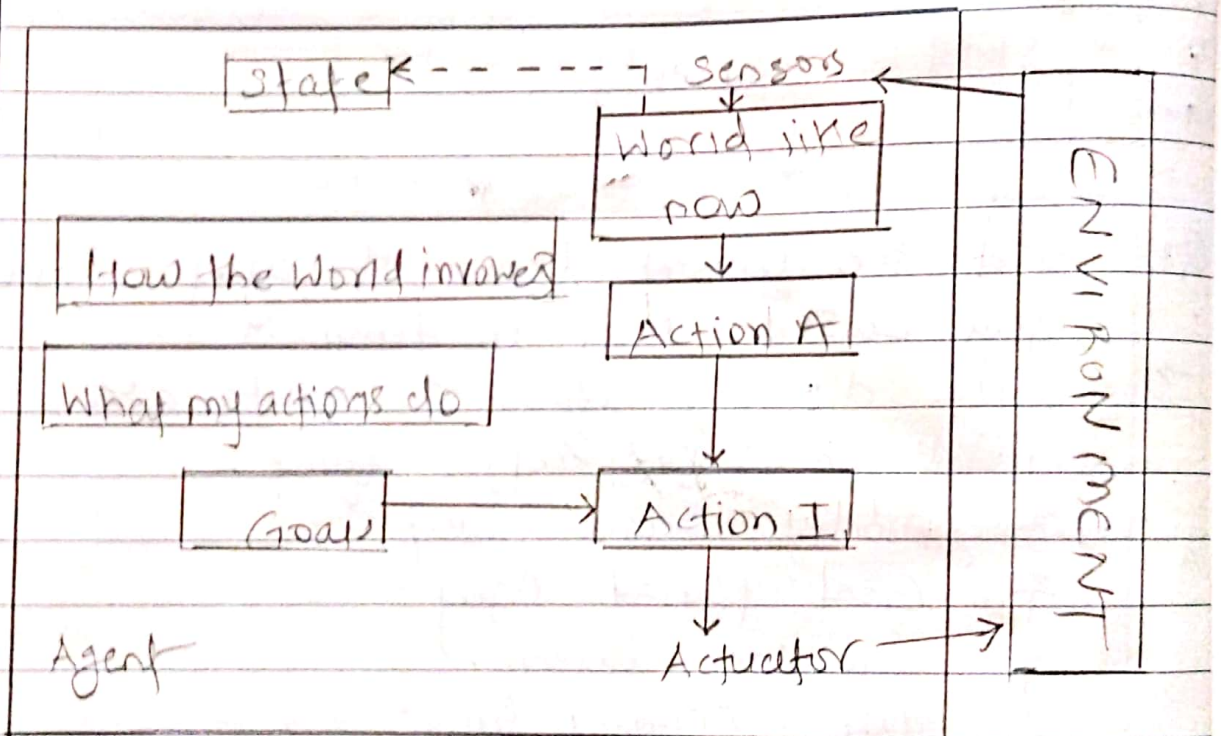 State
Sensors
World like
now
How the World invovles
Action A
What my actions do
Goals
Action I
Agent
Actuator
ENVIRONMENT